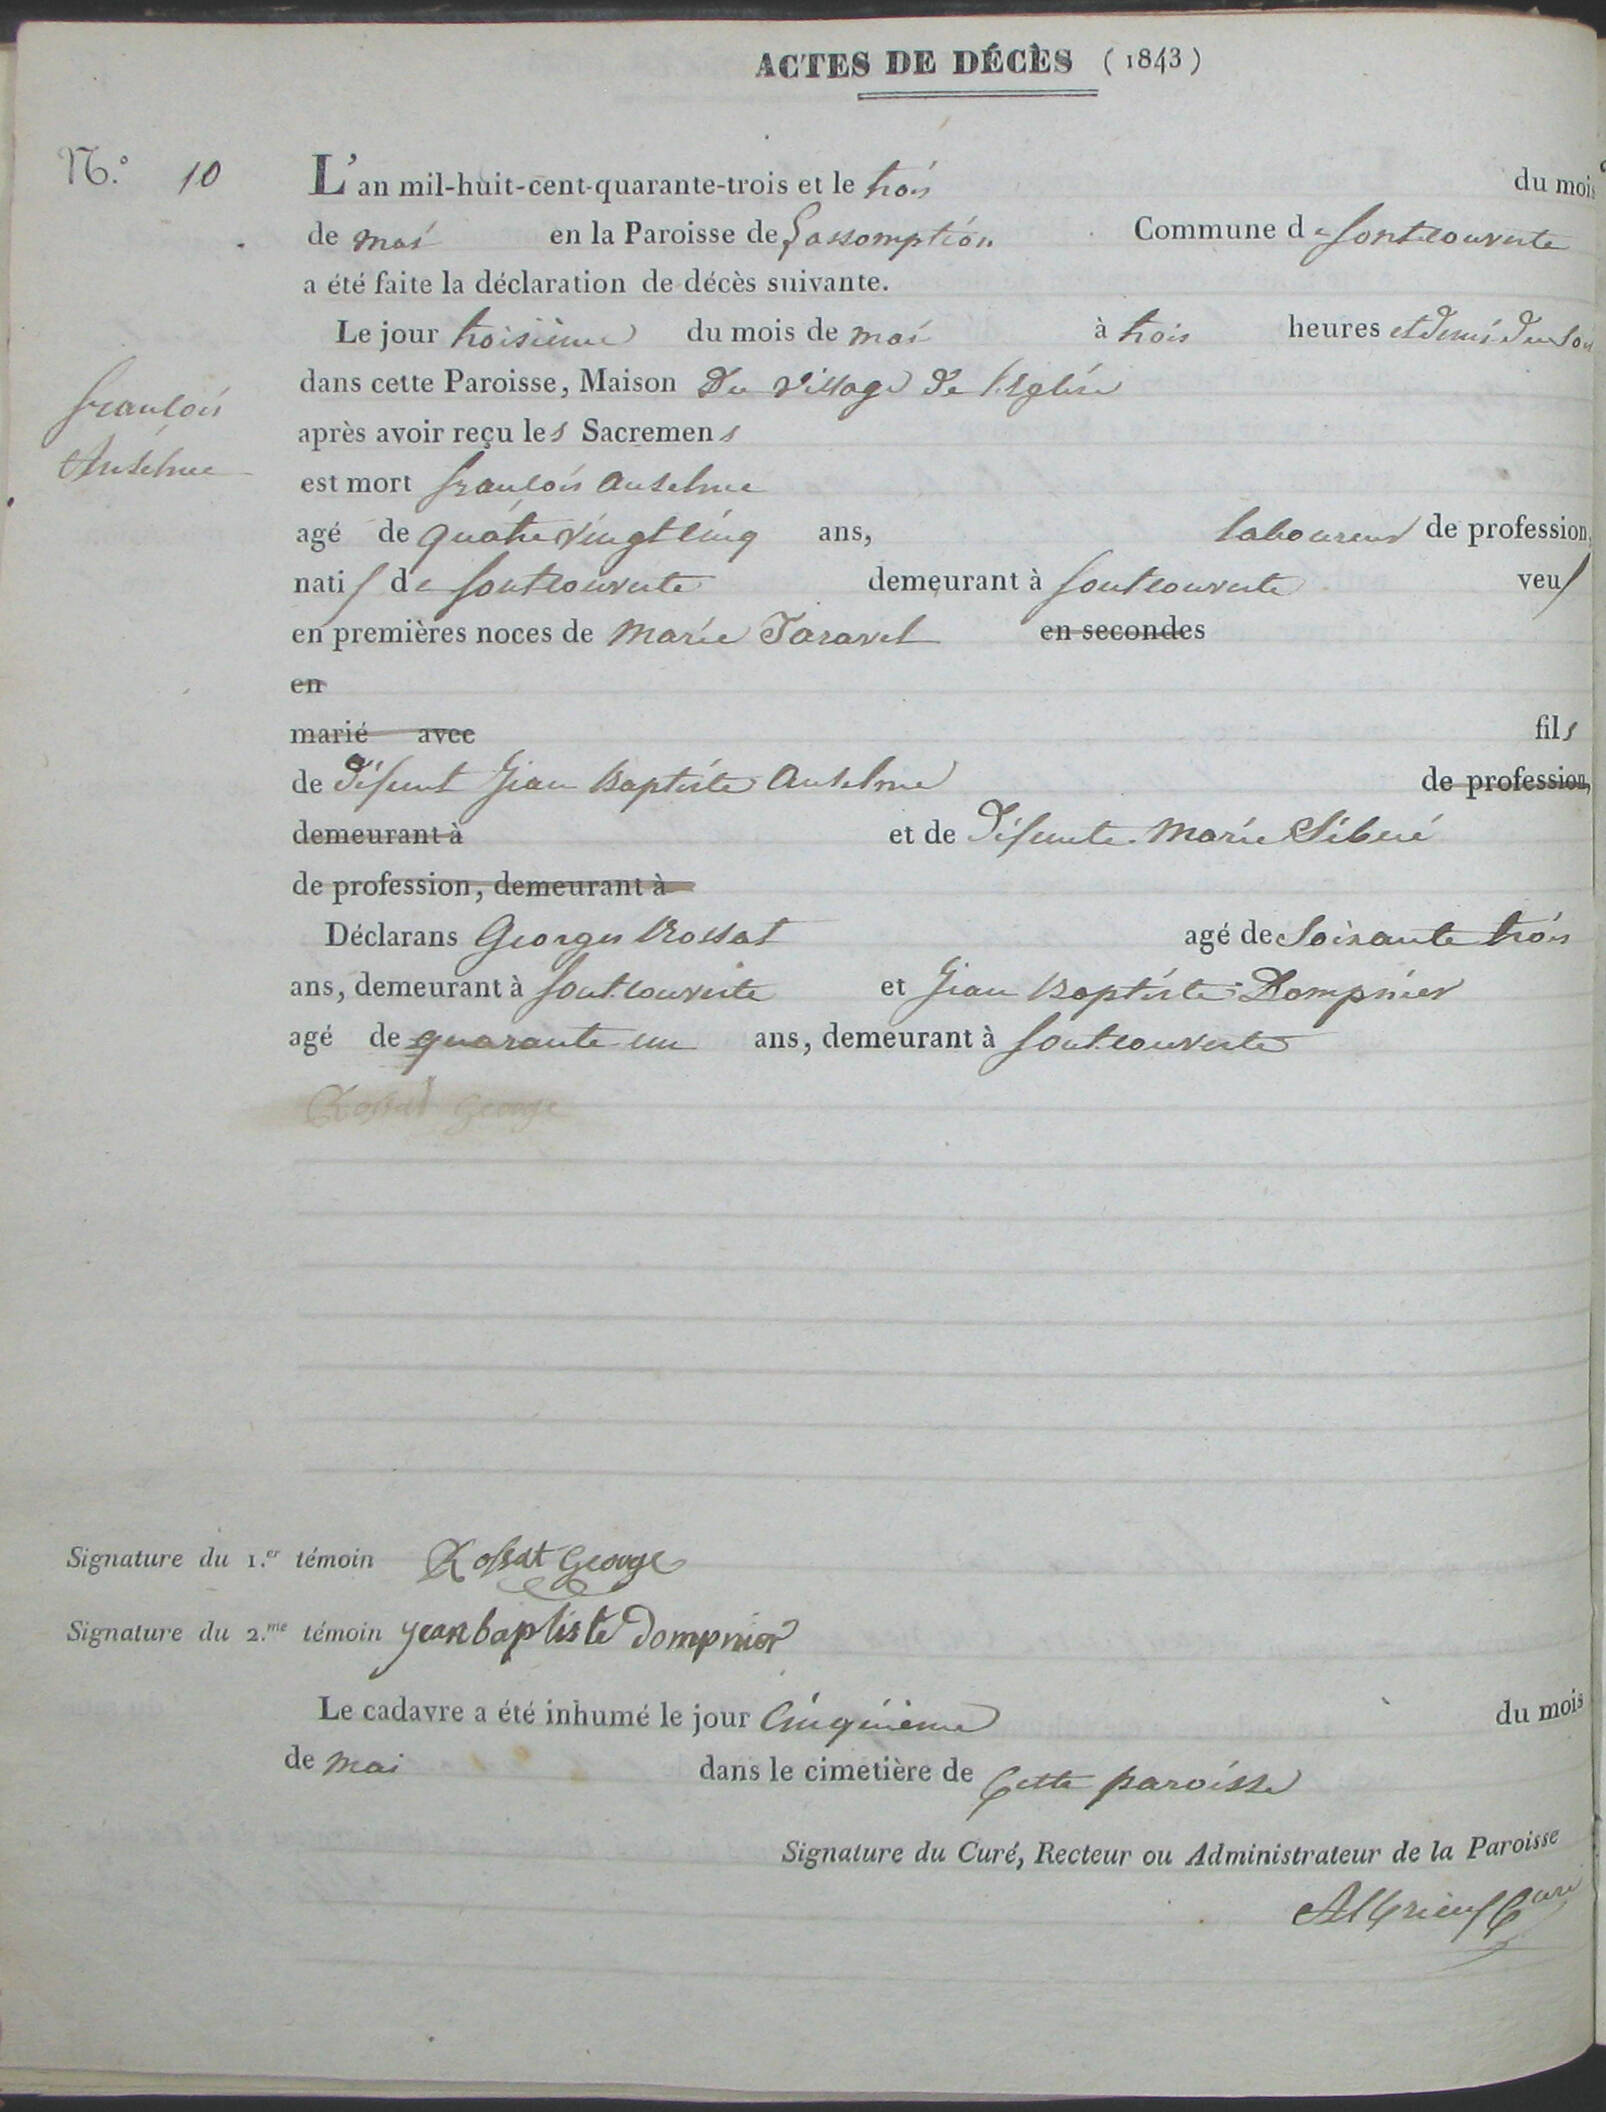 ACTES DE DÉCÈS (1843)
N.° 10 L'an mil-huit-cent-quarante-trois et le trois du mois
de mai en la Paroisse de Lassomption Commune de fontcouverte
a été faite la déclaration de décès suivante.
Le jour troisième du mois de mai à trois heures et demi du soir
dans cette Paroisse, Maison du village de l'Eglise
après avoir reçu les Sacremens
françois
Anselme
est mort françois anselme
agé de quatre vingt cinq ans, laboureur de profession,
natif de fontcouverte demeurant à fontcouverte veuf
en premières noces de marie Taravel en secondes
en
marié avec fils
de défunt Jean Baptiste anselme de profession,
demeurant à et de défunte marie
de profession, demeurant à
Déclarans Georges Rossat agé de Soixante trois
ans, demeurant à fontcouverte et Jean Baptiste Dompnier
agé de quarante un ans, demeurant à fontcouverte
Rossat George
Signature du 1.er témoin Rossat George
Signature du 2.me témoin jean baptiste dompnier
Le cadavre a été inhumé le jour Cinquième du mois
de mai dans le cimetière de Cette paroisse
Signature du Curé, Recteur ou Administrateur de la Paroisse
Curé